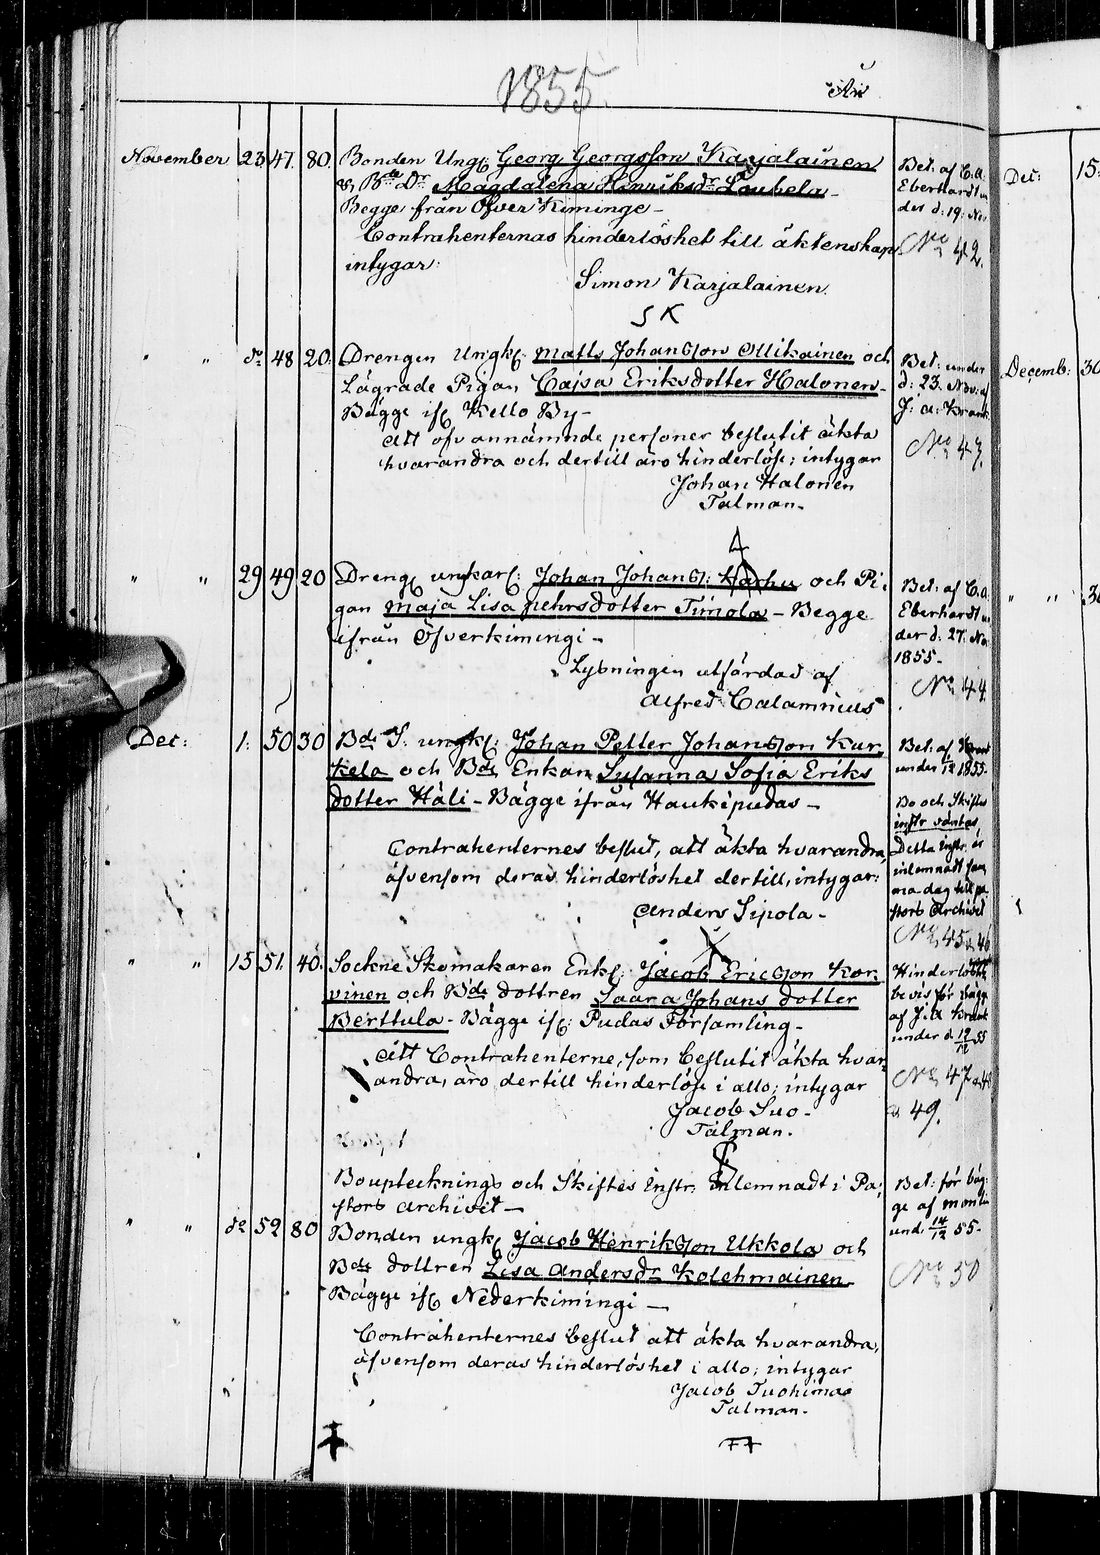 1855.
November 23 47. 80. Bonden Ungk: Georg Georgsson Karjalainen
& Bde Dr Magdalena Henriksdr Laukela -
Begge från Öfver Kiminge -
Contrahenternas hinderlöshet till äktenskap
intygar:
Simon Karjalainen.
S K
Bet. af C. A.
Eberhardt un
der d: 19: Nov
No 42.
" " do 48 20. Drengen Ungk: Matts Johansson Ollikainen och
Lägrade Pigan Cajsa Eriksdotter Halonen -
Bägge ifr Kello By -
Att ofvannämnde personer beslutit äkta
hvarandra och dertill äro hinderlöse; intygar
Johan Halonen
Talman -
Bet: under
d: 23. Nov: af
J: A: Krank
No 43.
" " 29 49 20 Dreng ungkarl: Johan Johans: Karhu och Pi-
gan Maja Lisa Pehrsdotter Timola - Begge
ifrån Öfverkimingi -
Lysningen utfärdad af
Alfred Calamnius
Bet: af C. A.
Eberhardt un
der d: 27: No
1855 -
No 44.
Dec: 1: 50 30 Bde S. ungk: Johan Petter Johansson Kur-
kela och Bde Enkan Susanna Sofia Eriks
dotter Häli - Bägge ifrån Haukipudas -
Contrahenternes beslut, att äkta hvarandra
äfvensom deras hinderlöshet dertill, intygar:
Anders Sipola -
Bet: af Krank
under 1/12 1855.
Bo och Skiftes
instr väntas,
Detta Instr. är
inlemnadt sam
ma dag till pa
stors Archivet
No 45 & 46
" " 15 51. 40. Sockne Skomakaren Enkl: Jacob Ericsson Kor-
vinen och Bde dottren Saara Johans dotter
Berttula - Bägge ifr: Pudas Församling -
Att Contrahenterne, som beslutit äkta hvar-
andra, äro dertill hinderlöse i allo; intygar
Jacob Suo -
Talman.
Hinderlöshets
bevis för bägge
af J. A Krank
under d 12/12 55
No 47 & 48
& 49.
Bouptecknings och Skiftes Instr. inlemnadt i Pa-
stors Archivet -
" " do 52 80 Bonden ungk Jacob Henriksson Ukkola och
Bde dottren Lisa Andersdr Kolehmainen
Bägge ifr Nederkimingi -
Contrahenternes beslut att äkta hvarandra,
äfvensom deras hinderlöshet i allo; intygar
Jacob Tuohimaa
Talman -
Bet: för bäg-
ge af
und. 14/12 55 -
No 50
Dec: 15
Decemb: 30
" " 30